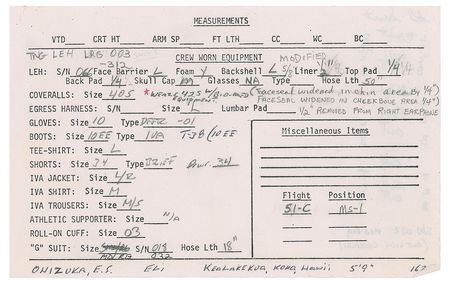 MEASUREMENTS
VTD CRT HT ARM SP FT LTH CC WC BC
TNG LEH LRG 003
-312
CREW WORN EQUIPMENT MODIFIED
LEH: S/N Face Barrier L Foam Y Backshell L 5/8 Liner 1/2" Top Pad 1/4
Back Pad 1/4 Skull Cap Glasses NA Type Hose Lth 50"
COVERALLS: Size 40S *WEARS 42S W/ Equipment (Faceseal widened in chin area By 1/4")
FACESEAL WIDENED IN CHEEKBONE AREA 1/4"
EGRESS HARNESS: S/N Size L Lumbar Pad 1/2" Removed From Right Earphone
GLOVES: Size 10 Type DEER -01
BOOTS: Size 10EE Type IVA T-38 (10EE
TEE-SHIRT: Size L
SHORTS: Size 34 Type BRIEF 34
IVA JACKET: Size L/R
IVA SHIRT: Size M
IVA TROUSERS: Size M/S
ATHLETIC SUPPORTER: Size N/A
ROLL-ON CUFF: Size 03
"G" SUIT: Size S/N 018 Hose Lth 18"
032
Miscellaneous Items
Flight Position
51-C MS-1
ONIZUKA, E.S. ELI KEALAKEKUA, KONA, HAWII 5'9" 162